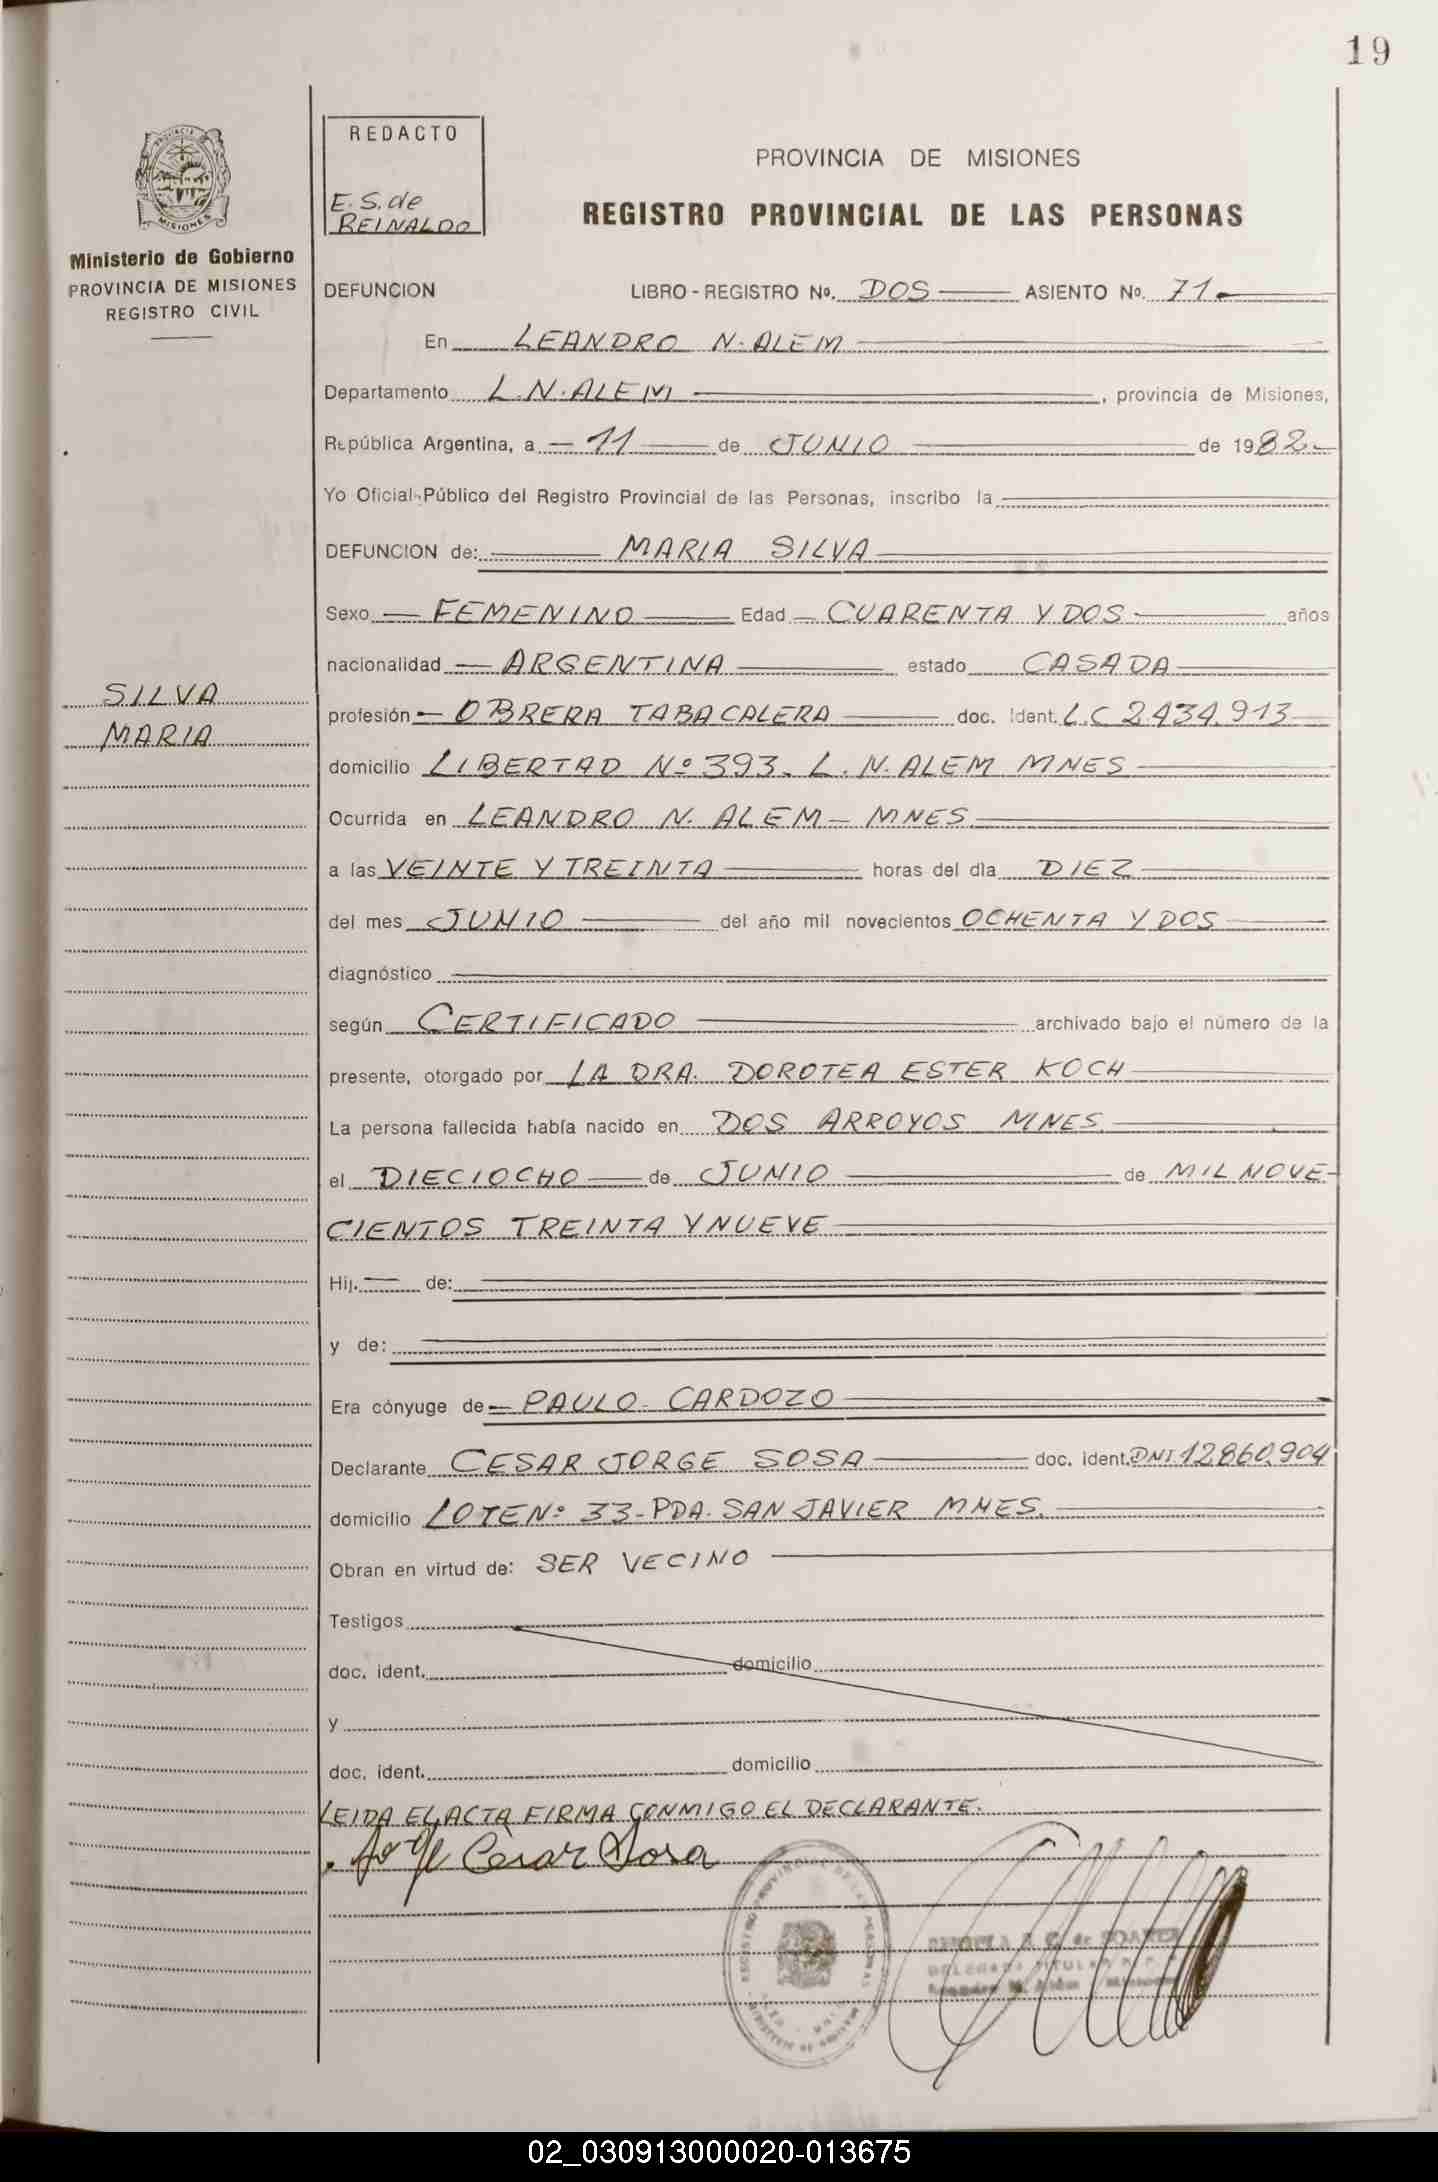 19
PROVINCIA DE MISIONES
Ministerio de Gobierno
PROVINCIA DE MISIONES
REGISTRO CIVIL
SILVA
MARIA
REDACTO
E.S. de
REINALDO
PROVINCIA DE MISIONES
REGISTRO PROVINCIAL DE LAS PERSONAS
DEFUNCION LIBRO - REGISTRO Nº. DOS ASIENTO Nº. 71
En LEANDRO N. ALEM
Departamento L.N. ALEM, provincia de Misiones,
República Argentina, a 11 de JUNIO de 1982
Yo Oficial Público del Registro Provincial de las Personas, inscribo la
DEFUNCION de: MARIA SILVA
Sexo FEMENINO Edad CUARENTA Y DOS años
nacionalidad ARGENTINA estado CASADA
profesión OBRERA TABACALERA doc. Ident. L.C 2.434.913
domicilio LIBERTAD Nº 393. L.N. ALEM MNES
Ocurrida en LEANDRO N. ALEM - MNES.
a las VEINTE Y TREINTA horas del día DIEZ
del mes JUNIO del año mil novecientos OCHENTA Y DOS
diagnóstico
según CERTIFICADO archivado bajo el número de la
presente, otorgado por LA DRA. DOROTEA ESTER KOCH
La persona fallecida había nacido en DOS ARROYOS MNES.
el DIECIOCHO de JUNIO de MIL NOVE-
CIENTOS TREINTA Y NUEVE
Hij. de:
y de:
Era cónyuge de PAULO CARDOZO
Declarante CESAR JORGE SOSA doc. ident. DNI 12.860.904
domicilio LOTE Nº 33 - PDA. SAN JAVIER MNES.
Obran en virtud de: SER VECINO
Testigos
doc. ident. domicilio
y
doc. ident. domicilio
LEIDA EL ACTA FIRMA CONMIGO EL DECLARANTE.
Cesar Sosa
02_030913000020-013675